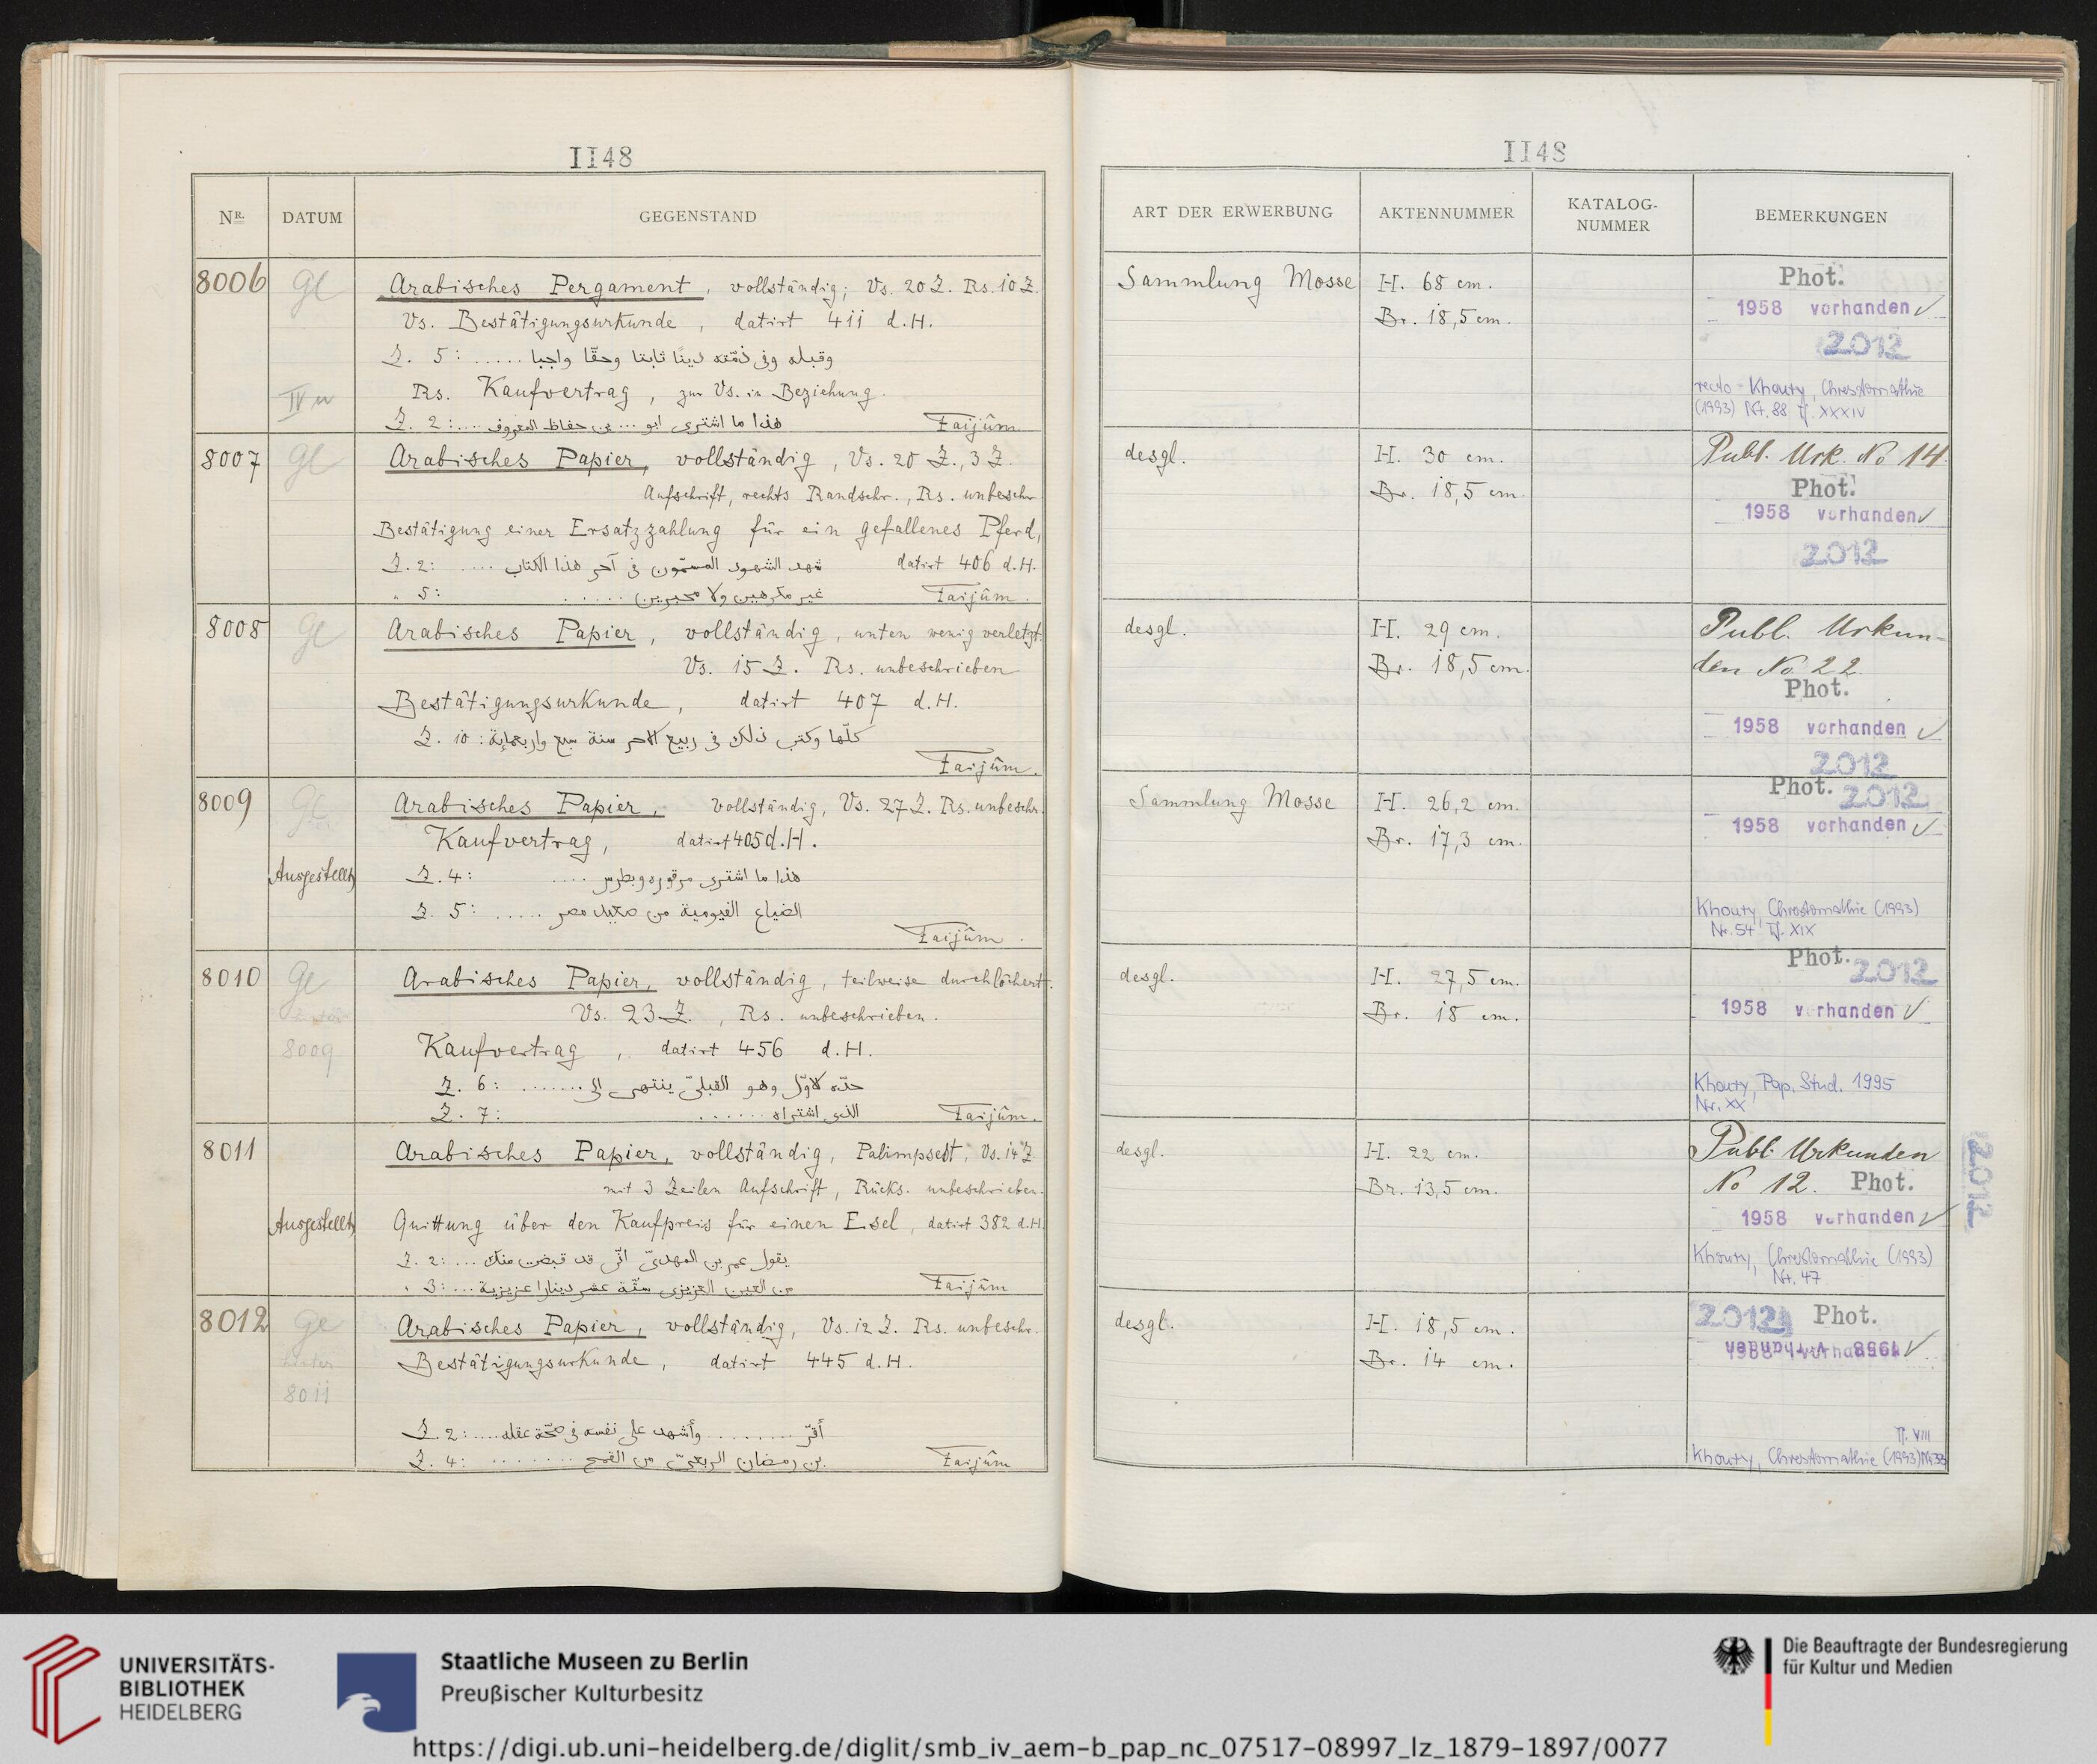 1148
NR.
DATUM
GEGENSTAND
8006
Gl
Arabisches Pergament, vollständig; Vs. 20 Z. Rs. 10 Z.
Vs. Bestätigungsurkunde, datirt 411 d.H.
Z. 5: ..... وقبله وفى ذمّته دينًا ثابتا وحقّا واجبا
Rs. Kaufvertrag, zur Vs. in Beziehung.
Z. 2: .... هذا ما اشترى ابو ... بن حفاظ المعروف
Faijûm
8007
Gl
Arabisches Papier, vollständig, Vs. 20 Z., 3 Z.
Aufschrift, rechts Randschr., Rs. unbeschr
Bestätigung einer Ersatzzahlung für ein gefallenes Pferd,
Z. 2: .... شهد الشهود المسمّون فى آخر هذا الكتاب datirt 406 d.H.
" 5: ..... غير مكرهين ولا مجبرين Faijûm.
8008
Gl
Arabisches Papier, vollständig, unten wenig verletzt.
Vs. 15 Z. Rs. unbeschrieben
Bestätigungsurkunde, datirt 407 d.H.
Z. 10: كلّها وكتب ذلك فى ربيع الاخر سنة سبع واربعماية
Faijûm.
8009
Gl
Ausgestellt
Arabisches Papier, vollständig, Vs. 27 Z. Rs. unbeschr.
Kaufvertrag, datirt 405 d.H.
Z. 4: .... هذا ما اشترى مرقوره وبطرس
Z. 5: ..... الضياع الفيومية من صعيد مصر
Faijûm.
8010
Gl
hinter
8009
Arabisches Papier, vollständig, teilweise durchlöchert.
Vs. 23 Z., Rs. unbeschrieben.
Kaufvertrag, datirt 456 d.H.
Z. 6: ....... حدّه الاوّل وهو القبلىّ ينتهى الى
Z. 7: ...... الذى اشتراه Faijûm.
8011
Ausgestellt
Arabisches Papier, vollständig, Palimpsest, Vs. 14 Z
mit 3 Zeilen Aufschrift, Rücks. unbeschrieben.
Quittung über den Kaufpreis für einen Esel, datirt 382 d.H.
Z. 2: ... يقول عمر بن المهدىّ انّى قد قبضت منك
" 3: ... من العين العزيزى ستّة عشر دينارا عزيزية Faijûm
8012
Gl
hinter
8011
Arabisches Papier, vollständig, Vs. 12 Z. Rs. unbeschr.
Bestätigungsurkunde, datirt 445 d.H.
Z. 2: .... أقرّ ........ وأشهد على نفسه فى صحّة عقله
Z. 4: ........ بن رمضان الربعىّ من القمح Faijûm
1148
ART DER ERWERBUNG
AKTENNUMMER
KATALOG-
NUMMER
BEMERKUNGEN
Sammlung Mosse
H. 68 cm.
Br. 18,5 cm.
Phot.
1958 vorhanden ✓
2012
recto = Khoury, Chrestomathie
(1993) Nr. 88 Tf. XXXIV
desgl.
H. 30 cm.
Br. 18,5 cm.
Publ. Urk. No 14.
Phot.
1958 vorhanden ✓
2012
desgl.
H. 29 cm.
Br. 18,5 cm.
Publ. Urkun-
den No 22.
Phot.
1958 vorhanden ✓
2012
Sammlung Mosse
H. 26,2 cm.
Br. 17,3 cm.
Phot. 2012
1958 vorhanden ✓
Khoury, Chrestomathie (1993)
Nr. 54 Tf. XIX
desgl.
H. 27,5 cm.
Br. 18 cm.
Phot. 2012
1958 vorhanden ✓
Khoury, Pap. Stud. 1995
Nr. XX
desgl.
H. 22 cm.
Br. 13,5 cm.
Publ. Urkunden
No 12. Phot.
1958 vorhanden ✓
2012
Khoury, Chrestomathie (1993)
Nr. 47
desgl.
H. 18,5 cm.
Br. 14 cm.
2012 Phot.
1958 vorhanden ✓
Tf. VIII
Khoury, Chrestomathie (1993) Nr. 33
UNIVERSITÄTS-
BIBLIOTHEK
HEIDELBERG
Staatliche Museen zu Berlin
Preußischer Kulturbesitz
Die Beauftragte der Bundesregierung
für Kultur und Medien
https://digi.ub.uni-heidelberg.de/diglit/smb_iv_aem-b_pap_nc_07517-08997_lz_1879-1897/0077